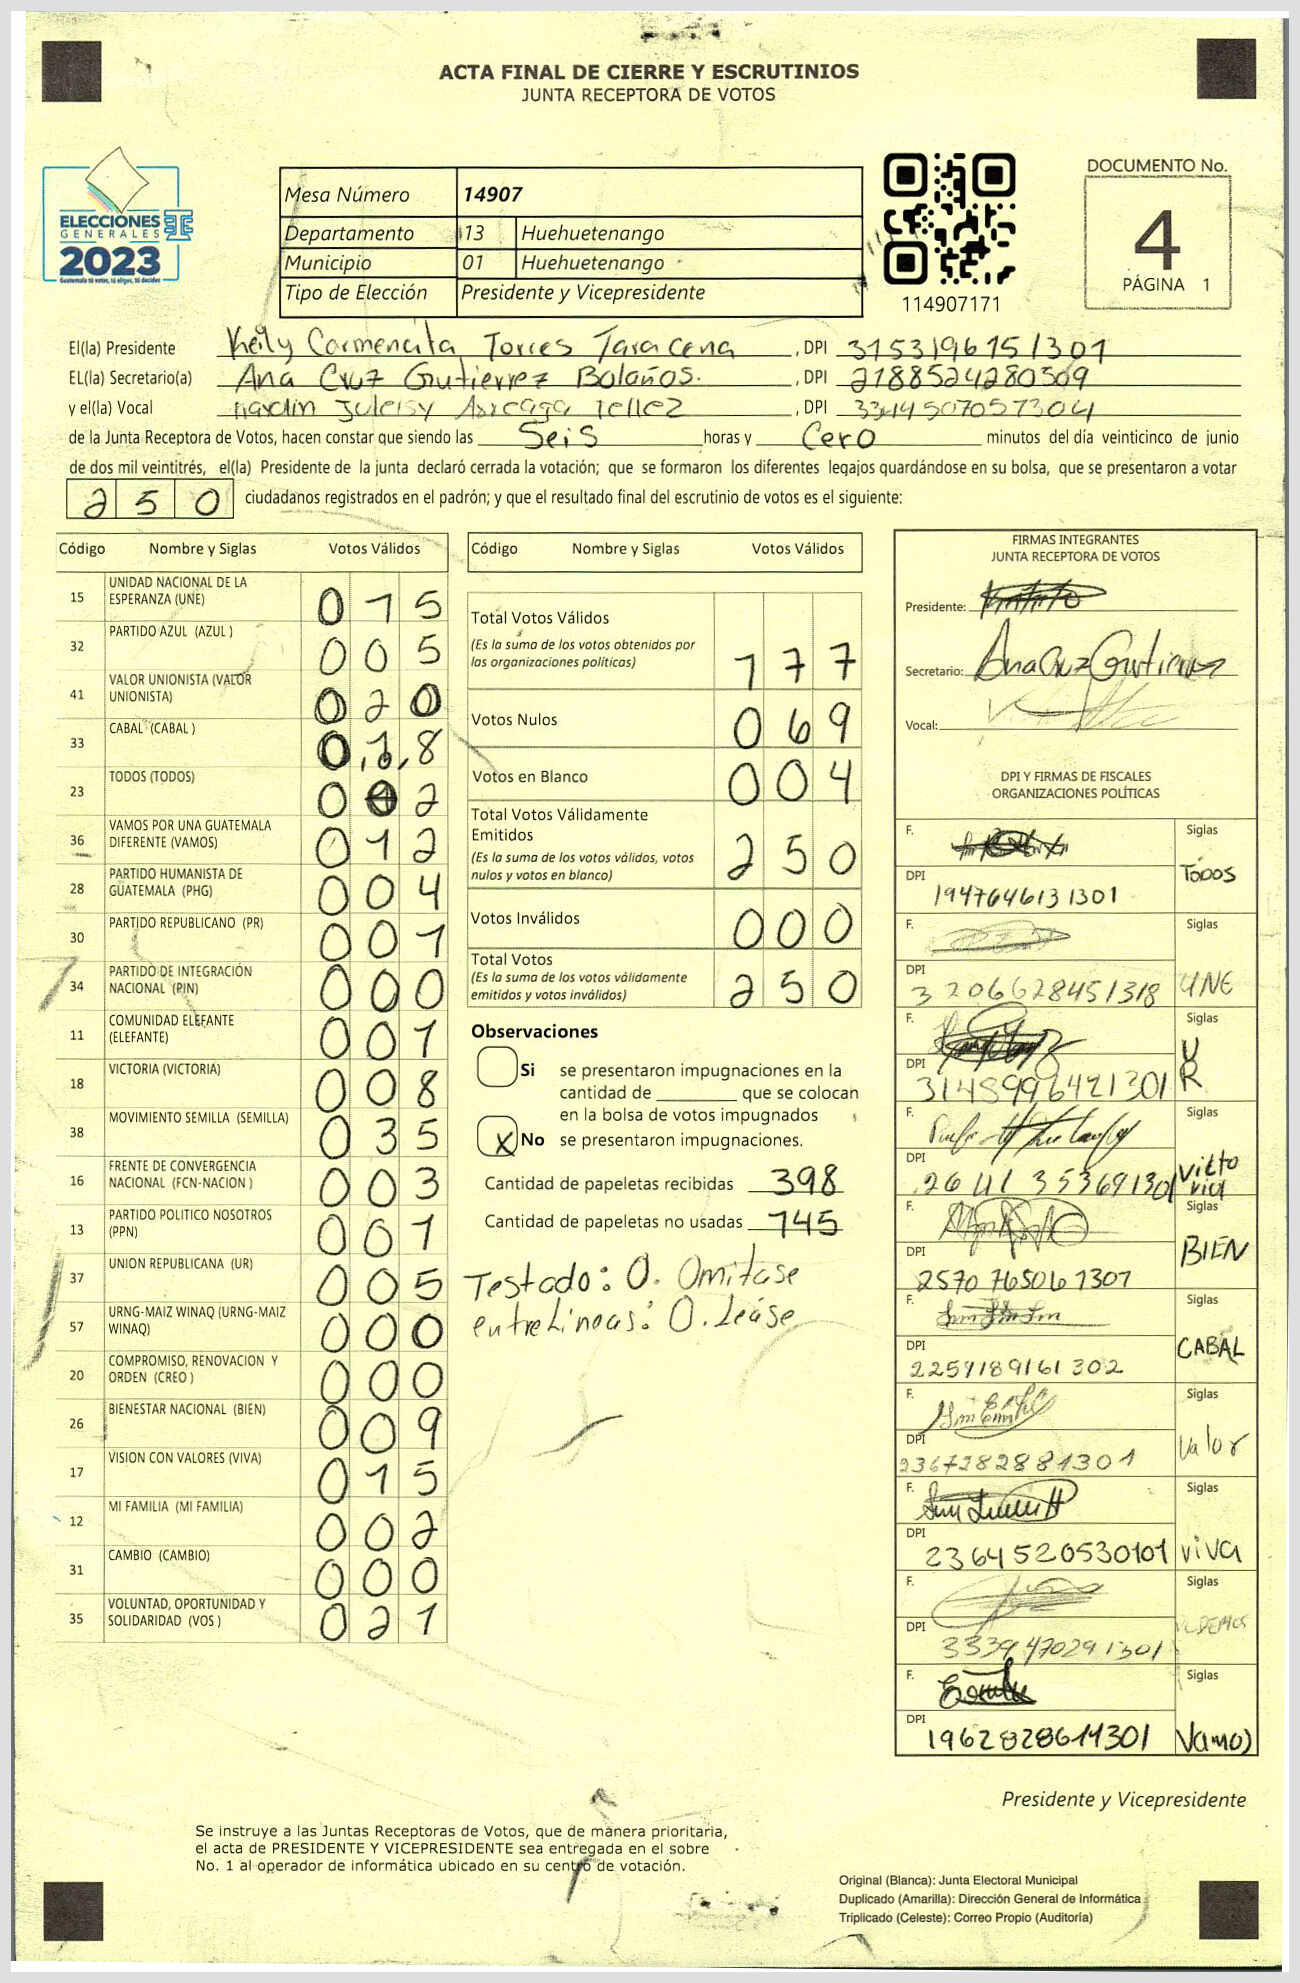 ACTA FINAL DE CIERRE Y ESCRUTINIOS
JUNTA RECEPTORA DE VOTOS
ELECCIONES
GENERALES
2023
Guatemala tú votas, tú eliges, tú decides
Mesa Número 14907
Departamento 13 Huehuetenango
Municipio 01 Huehuetenango
Tipo de Elección Presidente y Vicepresidente
114907171
DOCUMENTO No.
4
PÁGINA 1
El(la) Presidente Keily Carmencita Torres Taracena , DPI 3153196151301
EL(la) Secretario(a) Ana Cruz Gutierrez Bolaños. , DPI 2188524280509
y el(la) Vocal Juleisy Arreaga Tellez , DPI
de la Junta Receptora de Votos, hacen constar que siendo las Seis horas y Cero minutos del día veinticinco de junio
de dos mil veintitrés, el(la) Presidente de la junta declaró cerrada la votación; que se formaron los diferentes legajos quardándose en su bolsa, que se presentaron a votar
250 ciudadanos registrados en el padrón; y que el resultado final del escrutinio de votos es el siguiente:
Código Nombre y Siglas Votos Válidos
15 UNIDAD NACIONAL DE LA ESPERANZA (UNE) 015
32 PARTIDO AZUL (AZUL ) 005
41 VALOR UNIONISTA (VALOR UNIONISTA) 020
33 CABAL (CABAL ) 018
23 TODOS (TODOS) 002
36 VAMOS POR UNA GUATEMALA DIFERENTE (VAMOS) 012
28 PARTIDO HUMANISTA DE GUATEMALA (PHG) 004
30 PARTIDO REPUBLICANO (PR) 001
34 PARTIDO DE INTEGRACIÓN NACIONAL (PIN) 000
11 COMUNIDAD ELEFANTE (ELEFANTE) 001
18 VICTORIA (VICTORIA) 008
38 MOVIMIENTO SEMILLA (SEMILLA) 035
16 FRENTE DE CONVERGENCIA NACIONAL (FCN-NACION ) 003
13 PARTIDO POLITICO NOSOTROS (PPN) 001
37 UNION REPUBLICANA (UR) 005
57 URNG-MAIZ WINAQ (URNG-MAIZ WINAQ) 000
20 COMPROMISO, RENOVACION Y ORDEN (CREO ) 000
26 BIENESTAR NACIONAL (BIEN) 009
17 VISION CON VALORES (VIVA) 015
12 MI FAMILIA (MI FAMILIA) 002
31 CAMBIO (CAMBIO) 000
35 VOLUNTAD, OPORTUNIDAD Y SOLIDARIDAD (VOS ) 021
Código Nombre y Siglas Votos Válidos
Total Votos Válidos
(Es la suma de los votos obtenidos por
las organizaciones políticas) 177
Votos Nulos 069
Votos en Blanco 004
Total Votos Válidamente
Emitidos
(Es la suma de los votos válidos, votos
nulos y votos en blanco) 250
Votos Inválidos 000
Total Votos
(Es la suma de los votos válidamente
emitidos y votos inválidos) 250
Observaciones
Si se presentaron impugnaciones en la
cantidad de ________ que se colocan
en la bolsa de votos impugnados
X No se presentaron impugnaciones.
Cantidad de papeletas recibidas 398
Cantidad de papeletas no usadas 145
Testado: 0. Omitase
entreLineas: 0. Leáse
FIRMAS INTEGRANTES
JUNTA RECEPTORA DE VOTOS
Presidente:
Secretario: Ana Cruz Gutierrez
Vocal:
DPI Y FIRMAS DE FISCALES
ORGANIZACIONES POLÍTICAS
F. Siglas
DPI 1947646131301 TODOS
F. Siglas
DPI 3206628451318 UNE
F. Siglas
DPI 3148996421301 UR
F. Siglas
DPI 26411353691301 Victoria
F. Siglas
DPI 2570765061301 BIEN
F. Siglas
DPI 2259189161302 CABAL
F. Siglas
DPI 2367282881301 Valor
F. Siglas
DPI 2364520530101 viva
F. Siglas
DPI 3339470291301 PODEMOS
F. Siglas
DPI 1962828611301 Vamos
Presidente y Vicepresidente
Se instruye a las Juntas Receptoras de Votos, que de manera prioritaria,
el acta de PRESIDENTE Y VICEPRESIDENTE sea entregada en el sobre
No. 1 al operador de informática ubicado en su centro de votación.
Original (Blanca): Junta Electoral Municipal
Duplicado (Amarilla): Dirección General de Informática
Triplicado (Celeste): Correo Propio (Auditoría)